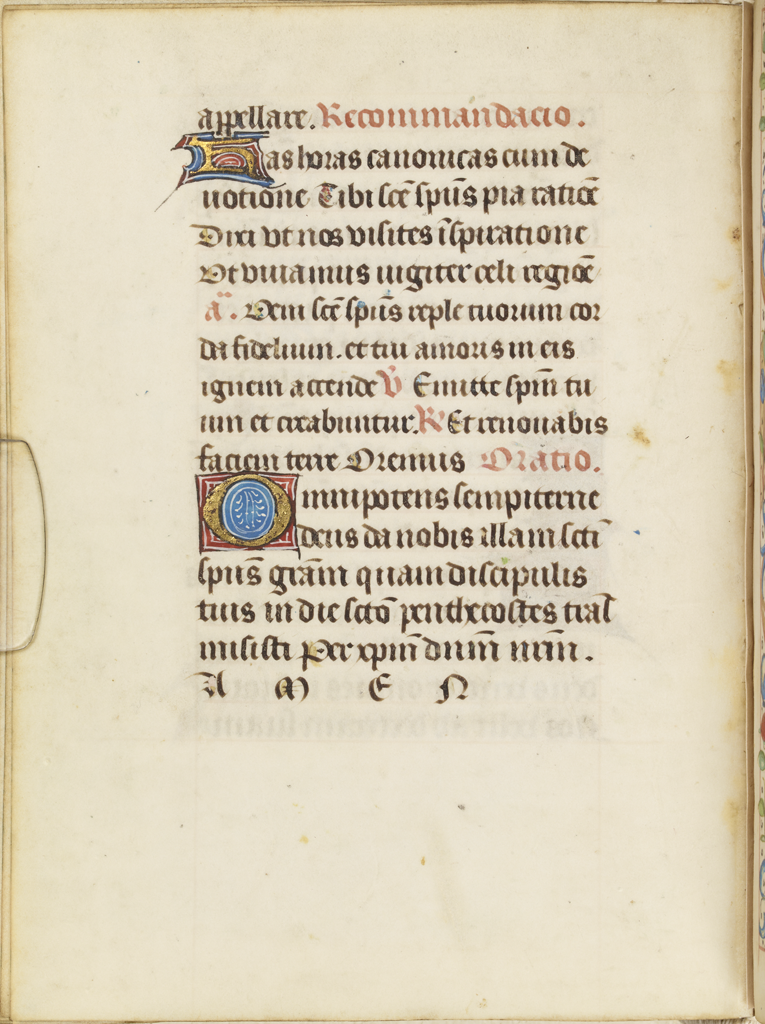 appellare. Recommandacio.
Has horas canonicas cum de
uotione Tibi scē spūs pia ratiōe
Dixi vt nos visites īspiratione
Vt viuamus iugiter celi regiōe
añ. Veni scē spūs reple tuorum cor
da fidelium. et tui amoris in eis
ignem accende V̄ Emitte spm̄ tu
um et creabuntur. R̄ Et renouabis
faciem terre Oremus Oratio.
Omnipotens sempiterne
deus da nobis illam scti
spūs grām quam discipulis
tuis in die scto penthecostes
misisti Per xpm̄ dnum nrm̄.
A M E N